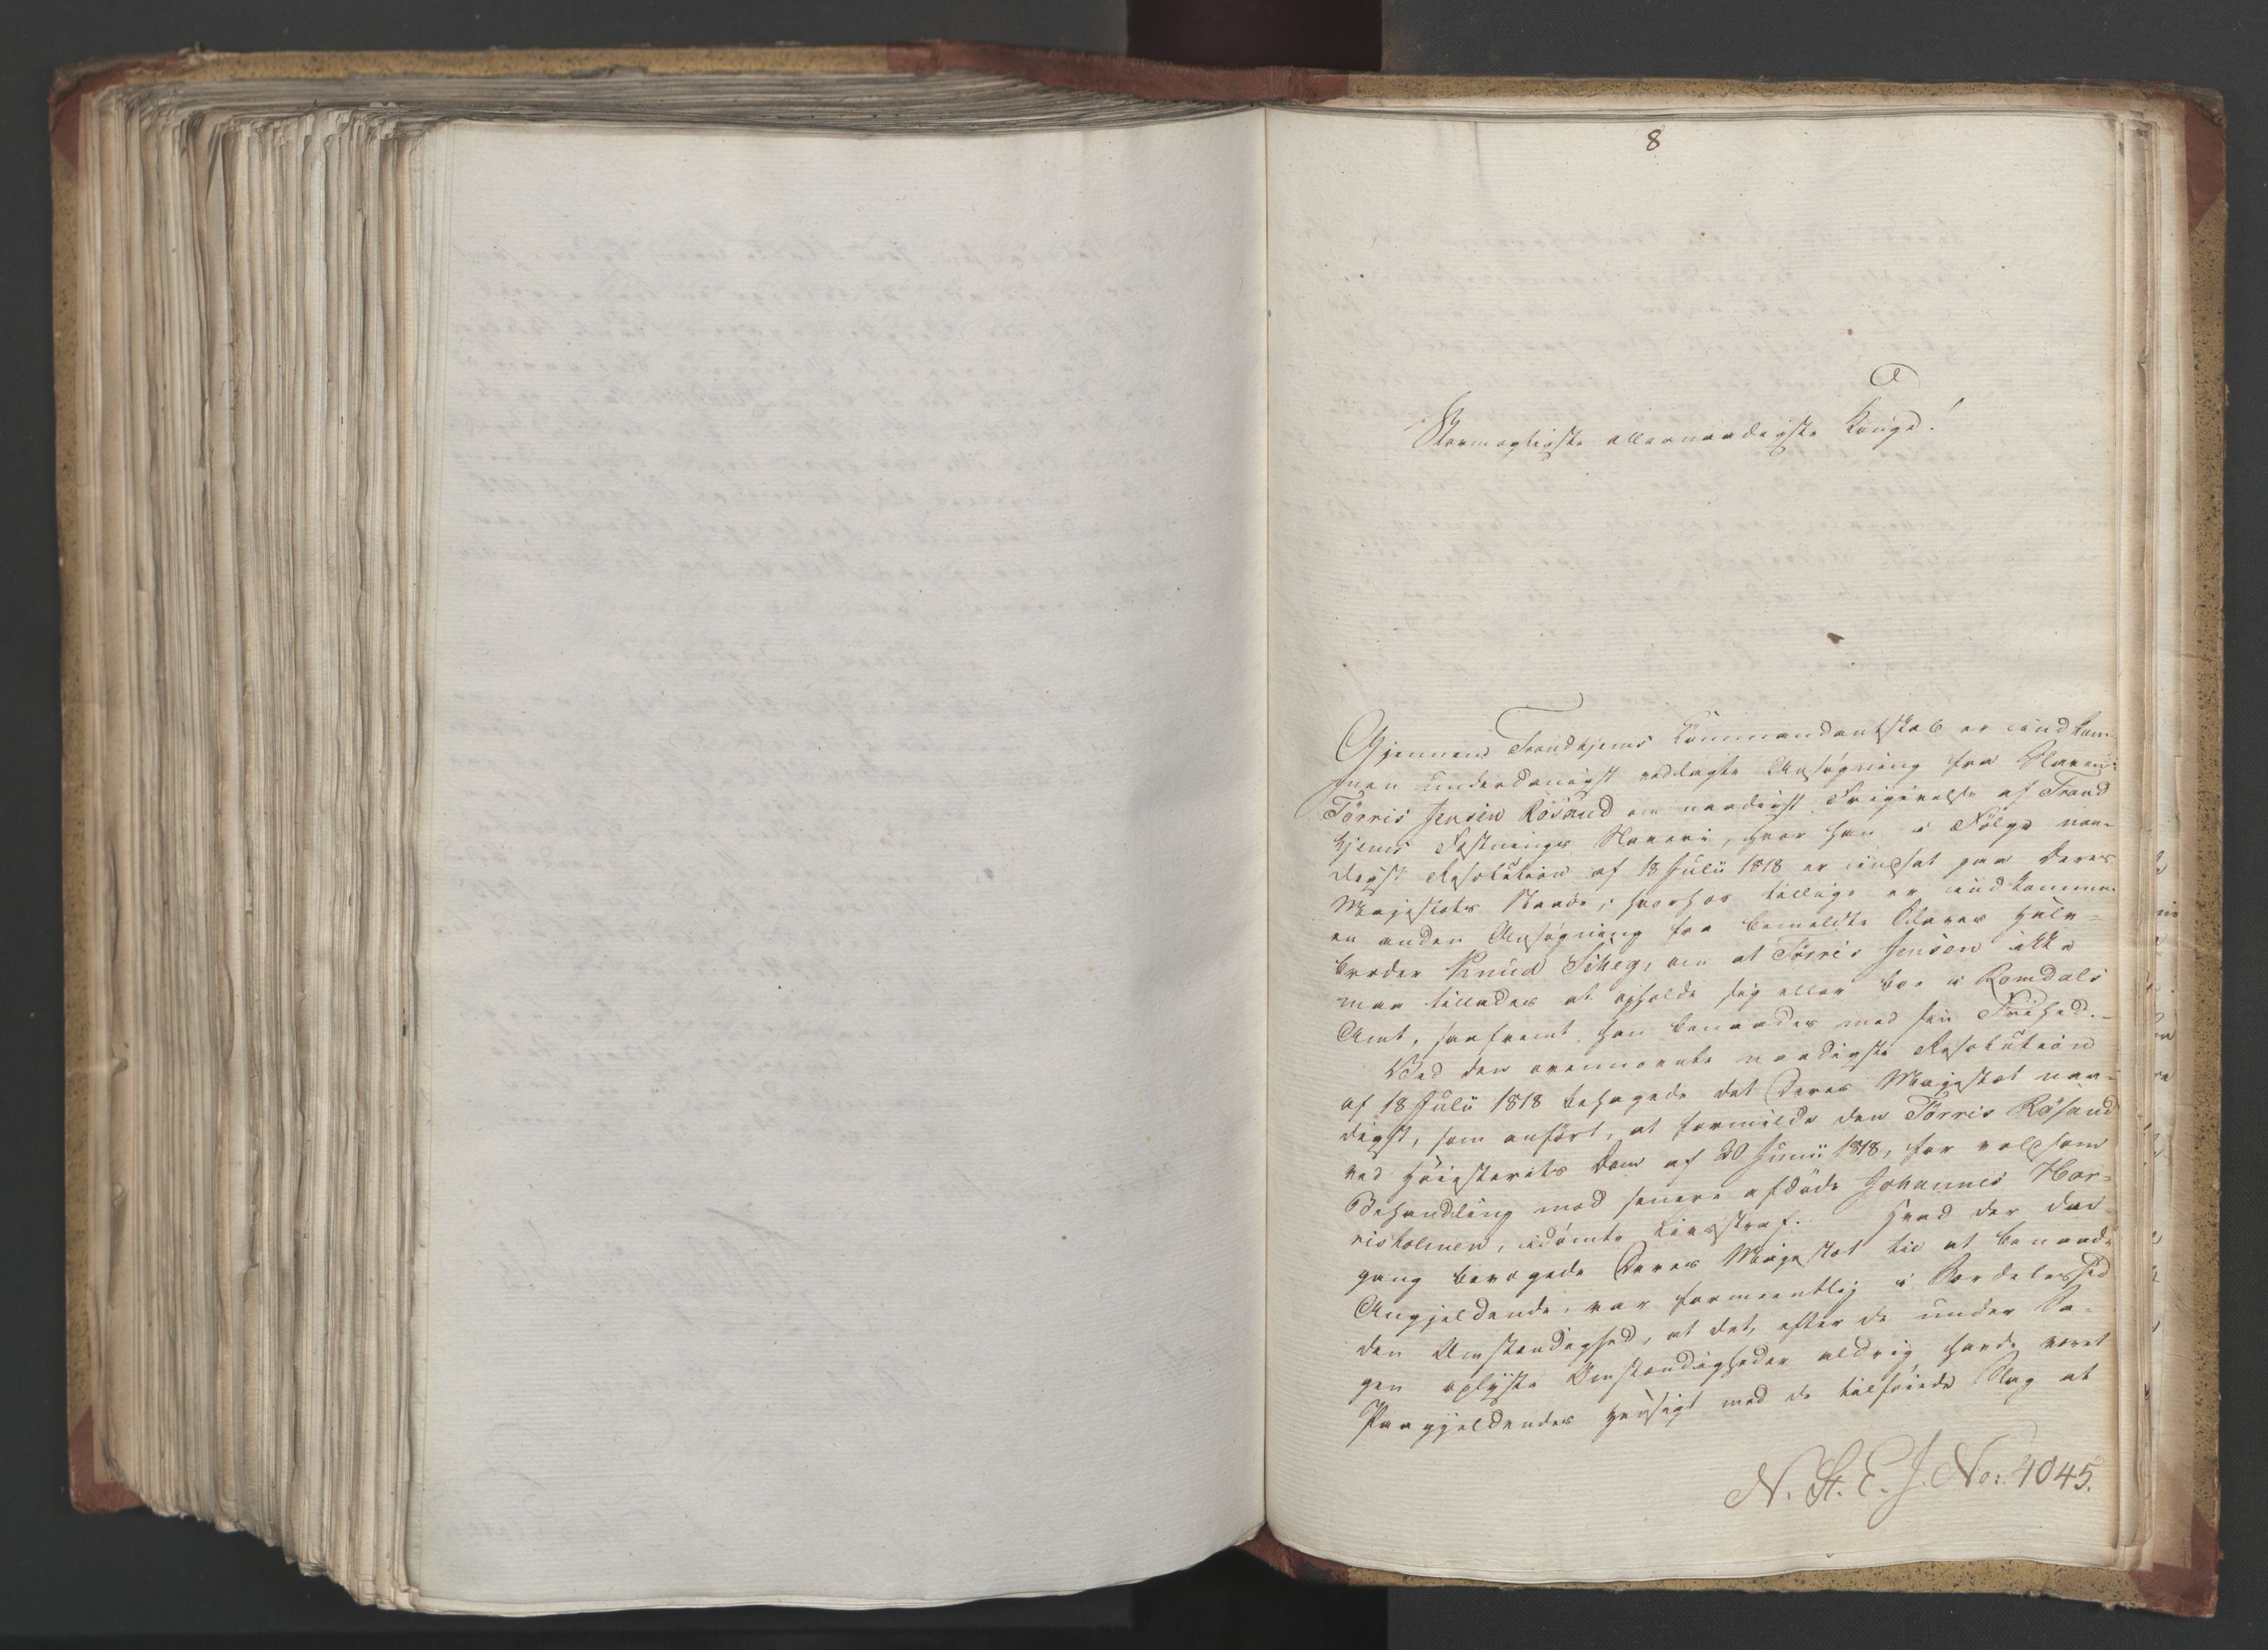 8
Stormægtigste allernaadigste Konge!
Gjennem Trondhjems Kommandantskab er indkom-
men underdanigst vedlagte Ansøgning fra Slaven
Törris Jensen Rösand om naadigst Frigivelse af Trond
hjems Fæstnings Slaveri, hvor han i Følge naa-
digst Resolution af 18 Julii 1818 er indsat paa Deres
Majestæts Naade; hvorhos tillige er indkommen
en anden Ansøgning fra bemeldte Slaves Halv-
broder Knud Silseg, om at Törris Jensen ikke
maa tillades at opholde sig eller boe i Romdals
Amt, saafremt han benaades med sin Frihed.-
Ved den ovennævnte naadigste Resolution
af 18 Julii 1818 behagede det Deres Majestæt naa-
digst, som anført, at formilde den Törris Rösand
ved Høiesterets Dom af 20 Junii 1818, for voldsom
Behandling mod senere afdøde Johannes Hor-
risholmen, idømte Livsstraf. Hvad der den-
gang bevægede Deres Majestæt til at benaade
Angjeldende, var formeentlig i Særdeleshed
den Omstændighed, at det, efter de under Sa-
gen oplyste Omstændigheder aldrig havde været
Paagjeldendes Hensigt med de tilføiede Slag at
N. St. E. J. No: 4045.